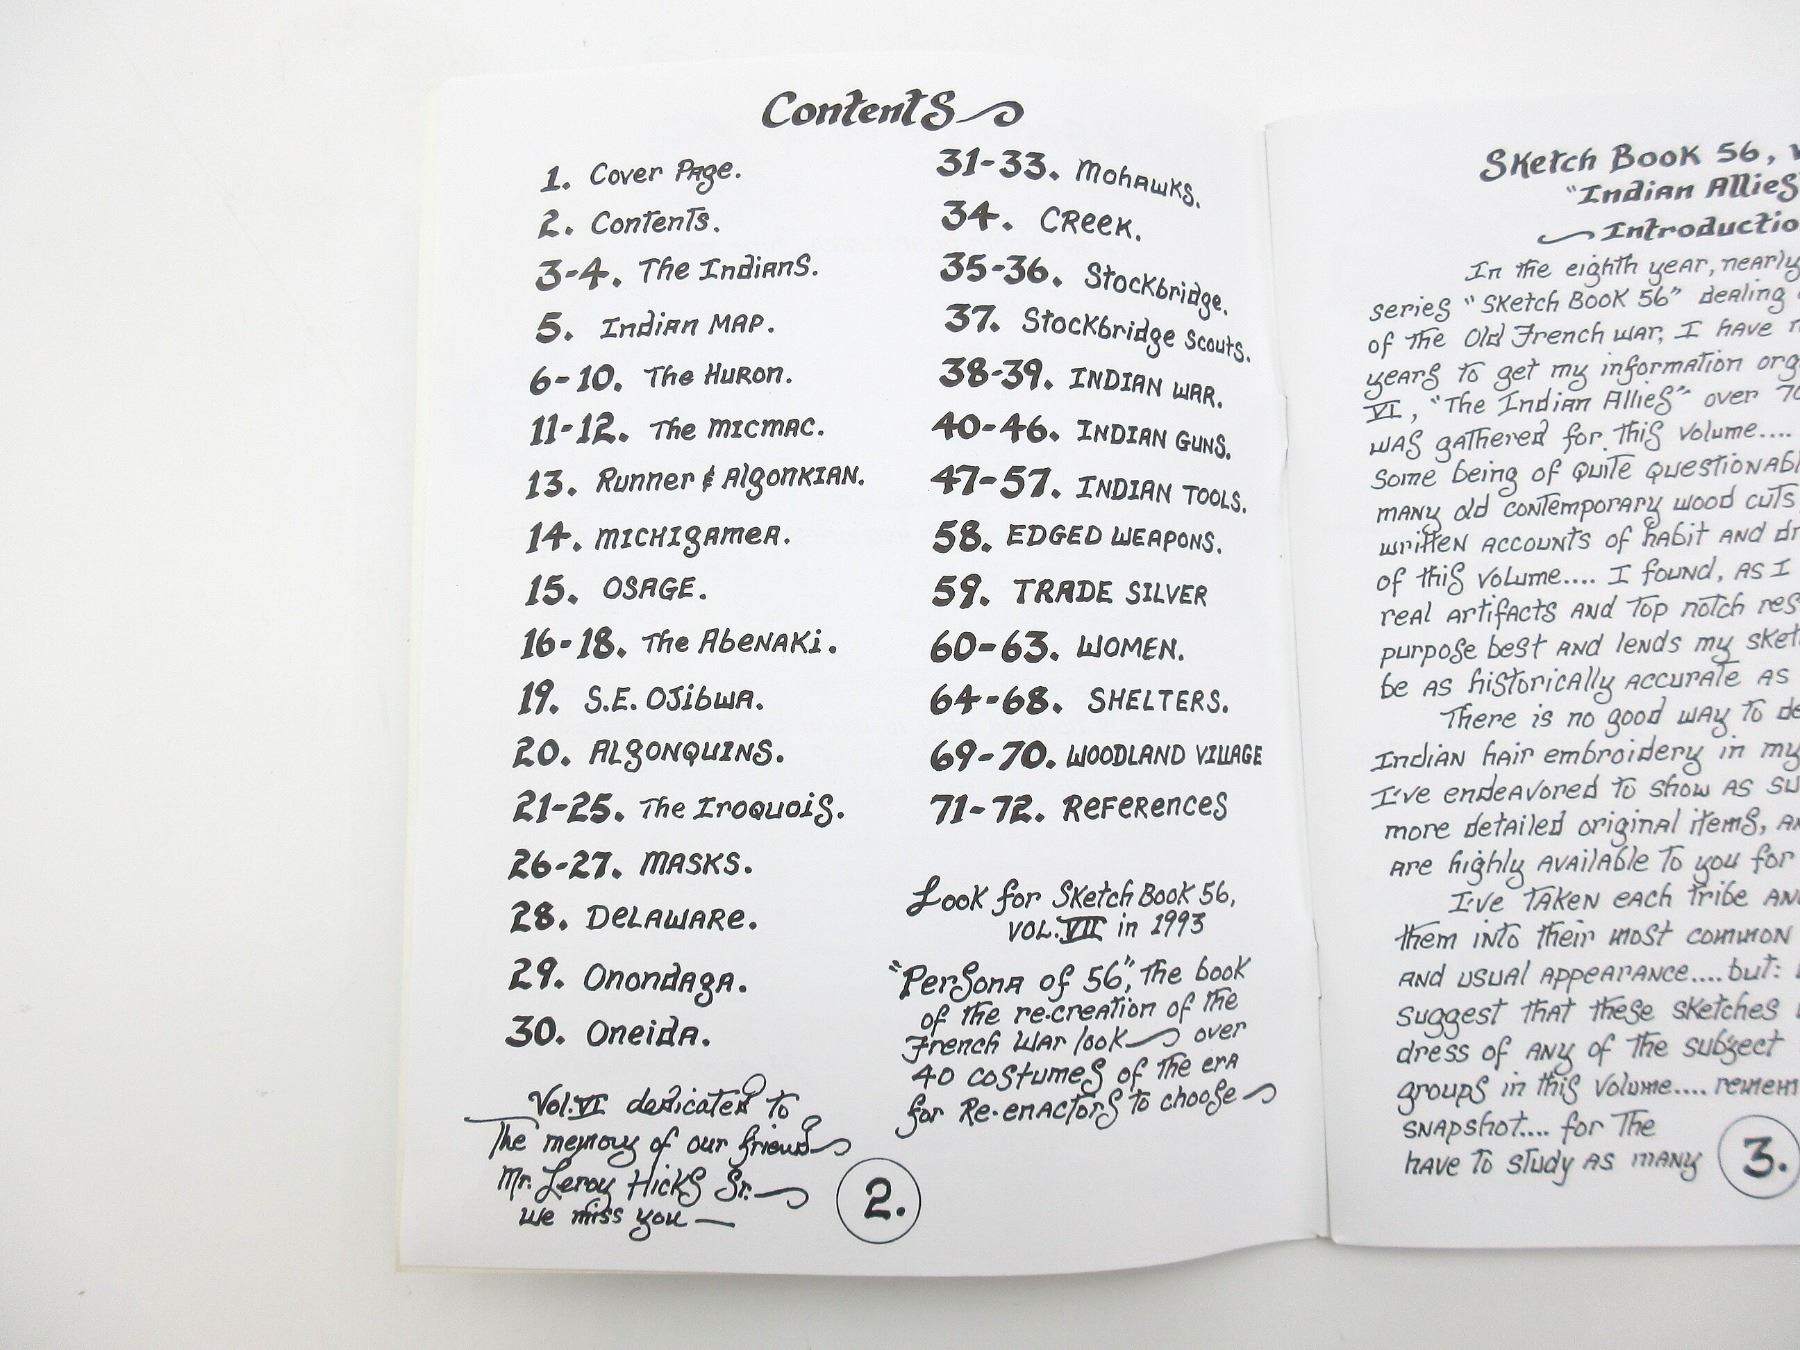 Contents
1. Cover Page.
2. Contents.
3-4. The Indians.
5. Indian Map.
6-10. The Huron.
11-12. The Micmac.
13. Runner & Algonkian.
14. Michigamea.
15. Osage.
16-18. The Abenaki.
19. S.E. Ojibwa.
20. Algonquins.
21-25. The Iroquois.
26-27. Masks.
28. Delaware.
29. Onondaga.
30. Oneida.
Vol. VI dedicated to
The memory of our friend
Mr. Leroy Hicks Sr.
we miss you —
31-33. Mohawks.
34. Creek.
35-36. Stockbridge.
37. Stockbridge Scouts.
38-39. INDIAN WAR.
40-46. INDIAN GUNS.
47-57. INDIAN TOOLS.
58. EDGED WEAPONS.
59. TRADE SILVER
60-63. WOMEN.
64-68. SHELTERS.
69-70. WOODLAND VILLAGE
71-72. References
Look for Sketch Book 56,
VOL. VII in 1993
"Persona of 56", The book
of the re-creation of the
French War look over
40 costumes of the era
for Re-enactors to choose
2.
Sketch Book 56,
"Indian Allies"
Introductio
In the eighth year, nearly
series "Sketch Book 56" dealing
of the Old French war, I have
years to get my information org
VI, "The Indian Allies" over 70
was gathered for this volume....
some being of quite questionabl
many old contemporary wood cuts
written accounts of habit and dr
of this volume.... I found, as I
real artifacts and top notch res
purpose best and lends my sket
be as historically accurate as
There is no good way to de
Indian hair embroidery in my
I've endeavored to show as su
more detailed original items, an
are highly available to you for
I've taken each tribe and
them into their most common
and usual appearance.... but:
suggest that these sketches
dress of any of the subject
groups in this volume.... remem
snapshot.... for The
have to study as many
3.